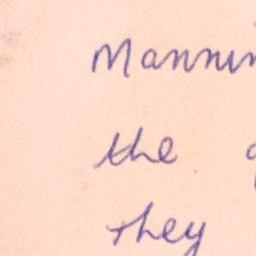 Mannin
the
they